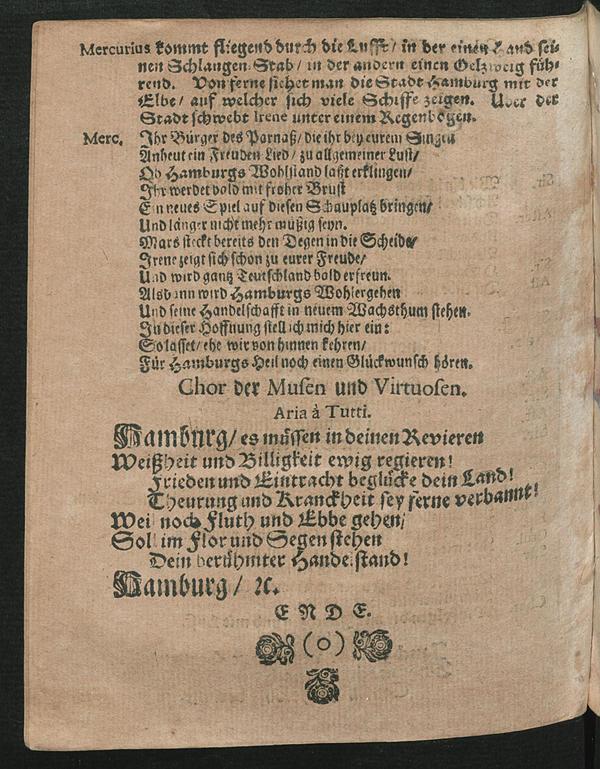 Mercurius kommt fliegend durch die Lufft/ in der einen Hand sei-
nen Schlangen-Stab/ in der andern einen Oelzweig füh-
rend. Von ferne siehet man die Stadt Hamburg mit der
Elbe/ auf welcher sich viele Schiffe zeigen. Uber der
Stadt schwebt Irene unter einem Regenbogen.
Merc. Ihr Bürger des Parnaß/ die ihr bey eurem Singen
Anheut ein Freuden-Lied/ zu allgemeiner Lust/
Ob Hamburgs Wohlstand laßt erklingen/
Ihr werdet bald mit froher Brust
Ein neues Spiel auf diesen Schauplatz bringen/
Und länger nicht mehr müßig seyn.
Mars steckt bereits den Degen in die Scheide/
Irene zeigt sich schon zu eurer Freude/
Und wird gantz Teutschland bald erfreun.
Alsdann wird Hamburgs Wohlergehen
Und seine Handelschafft in neuem Wachsthum stehen.
In dieser Hoffnung stell ich mich hier ein:
So lasset/ ehe wir von hinnen kehren/
Für Hamburgs Heil noch einen Glückwunsch hören.
Chor der Musen und Virtuosen.
Aria à Tutti.
Hamburg/ es müssen in deinen Revieren
Weißheit und Billigkeit ewig regieren!
Frieden und Eintracht beglücke dein Land!
Theurung und Kranckheit sey ferne verbannt!
Weil noch Fluth und Ebbe gehen/
Soll im Flor und Segen stehen
Dein berühmter Handelstand!
Hamburg/ ꝛc.
E N D E.
(o)